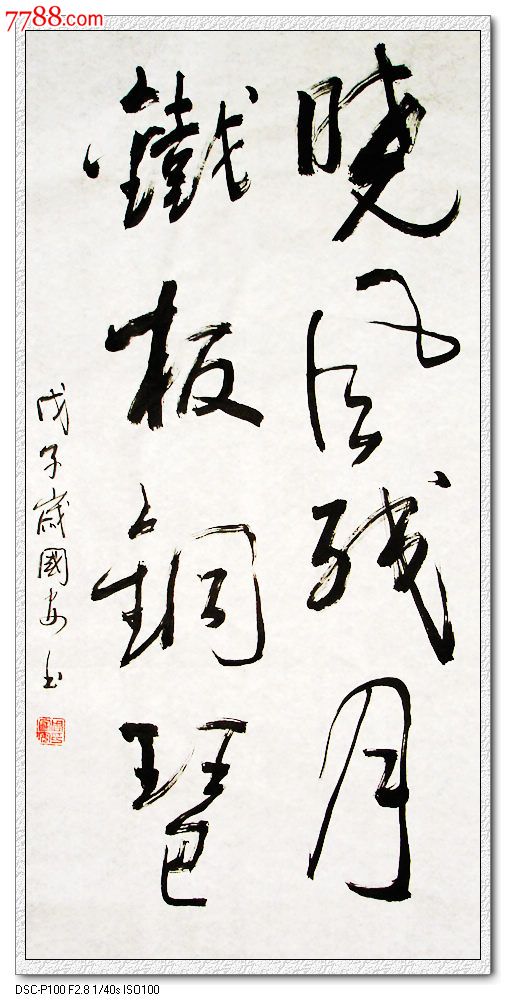 7788.com
曉风残月
鐵板銅琶
戊子歲國安书
DSC-P100 F2.8 1/40s ISO100